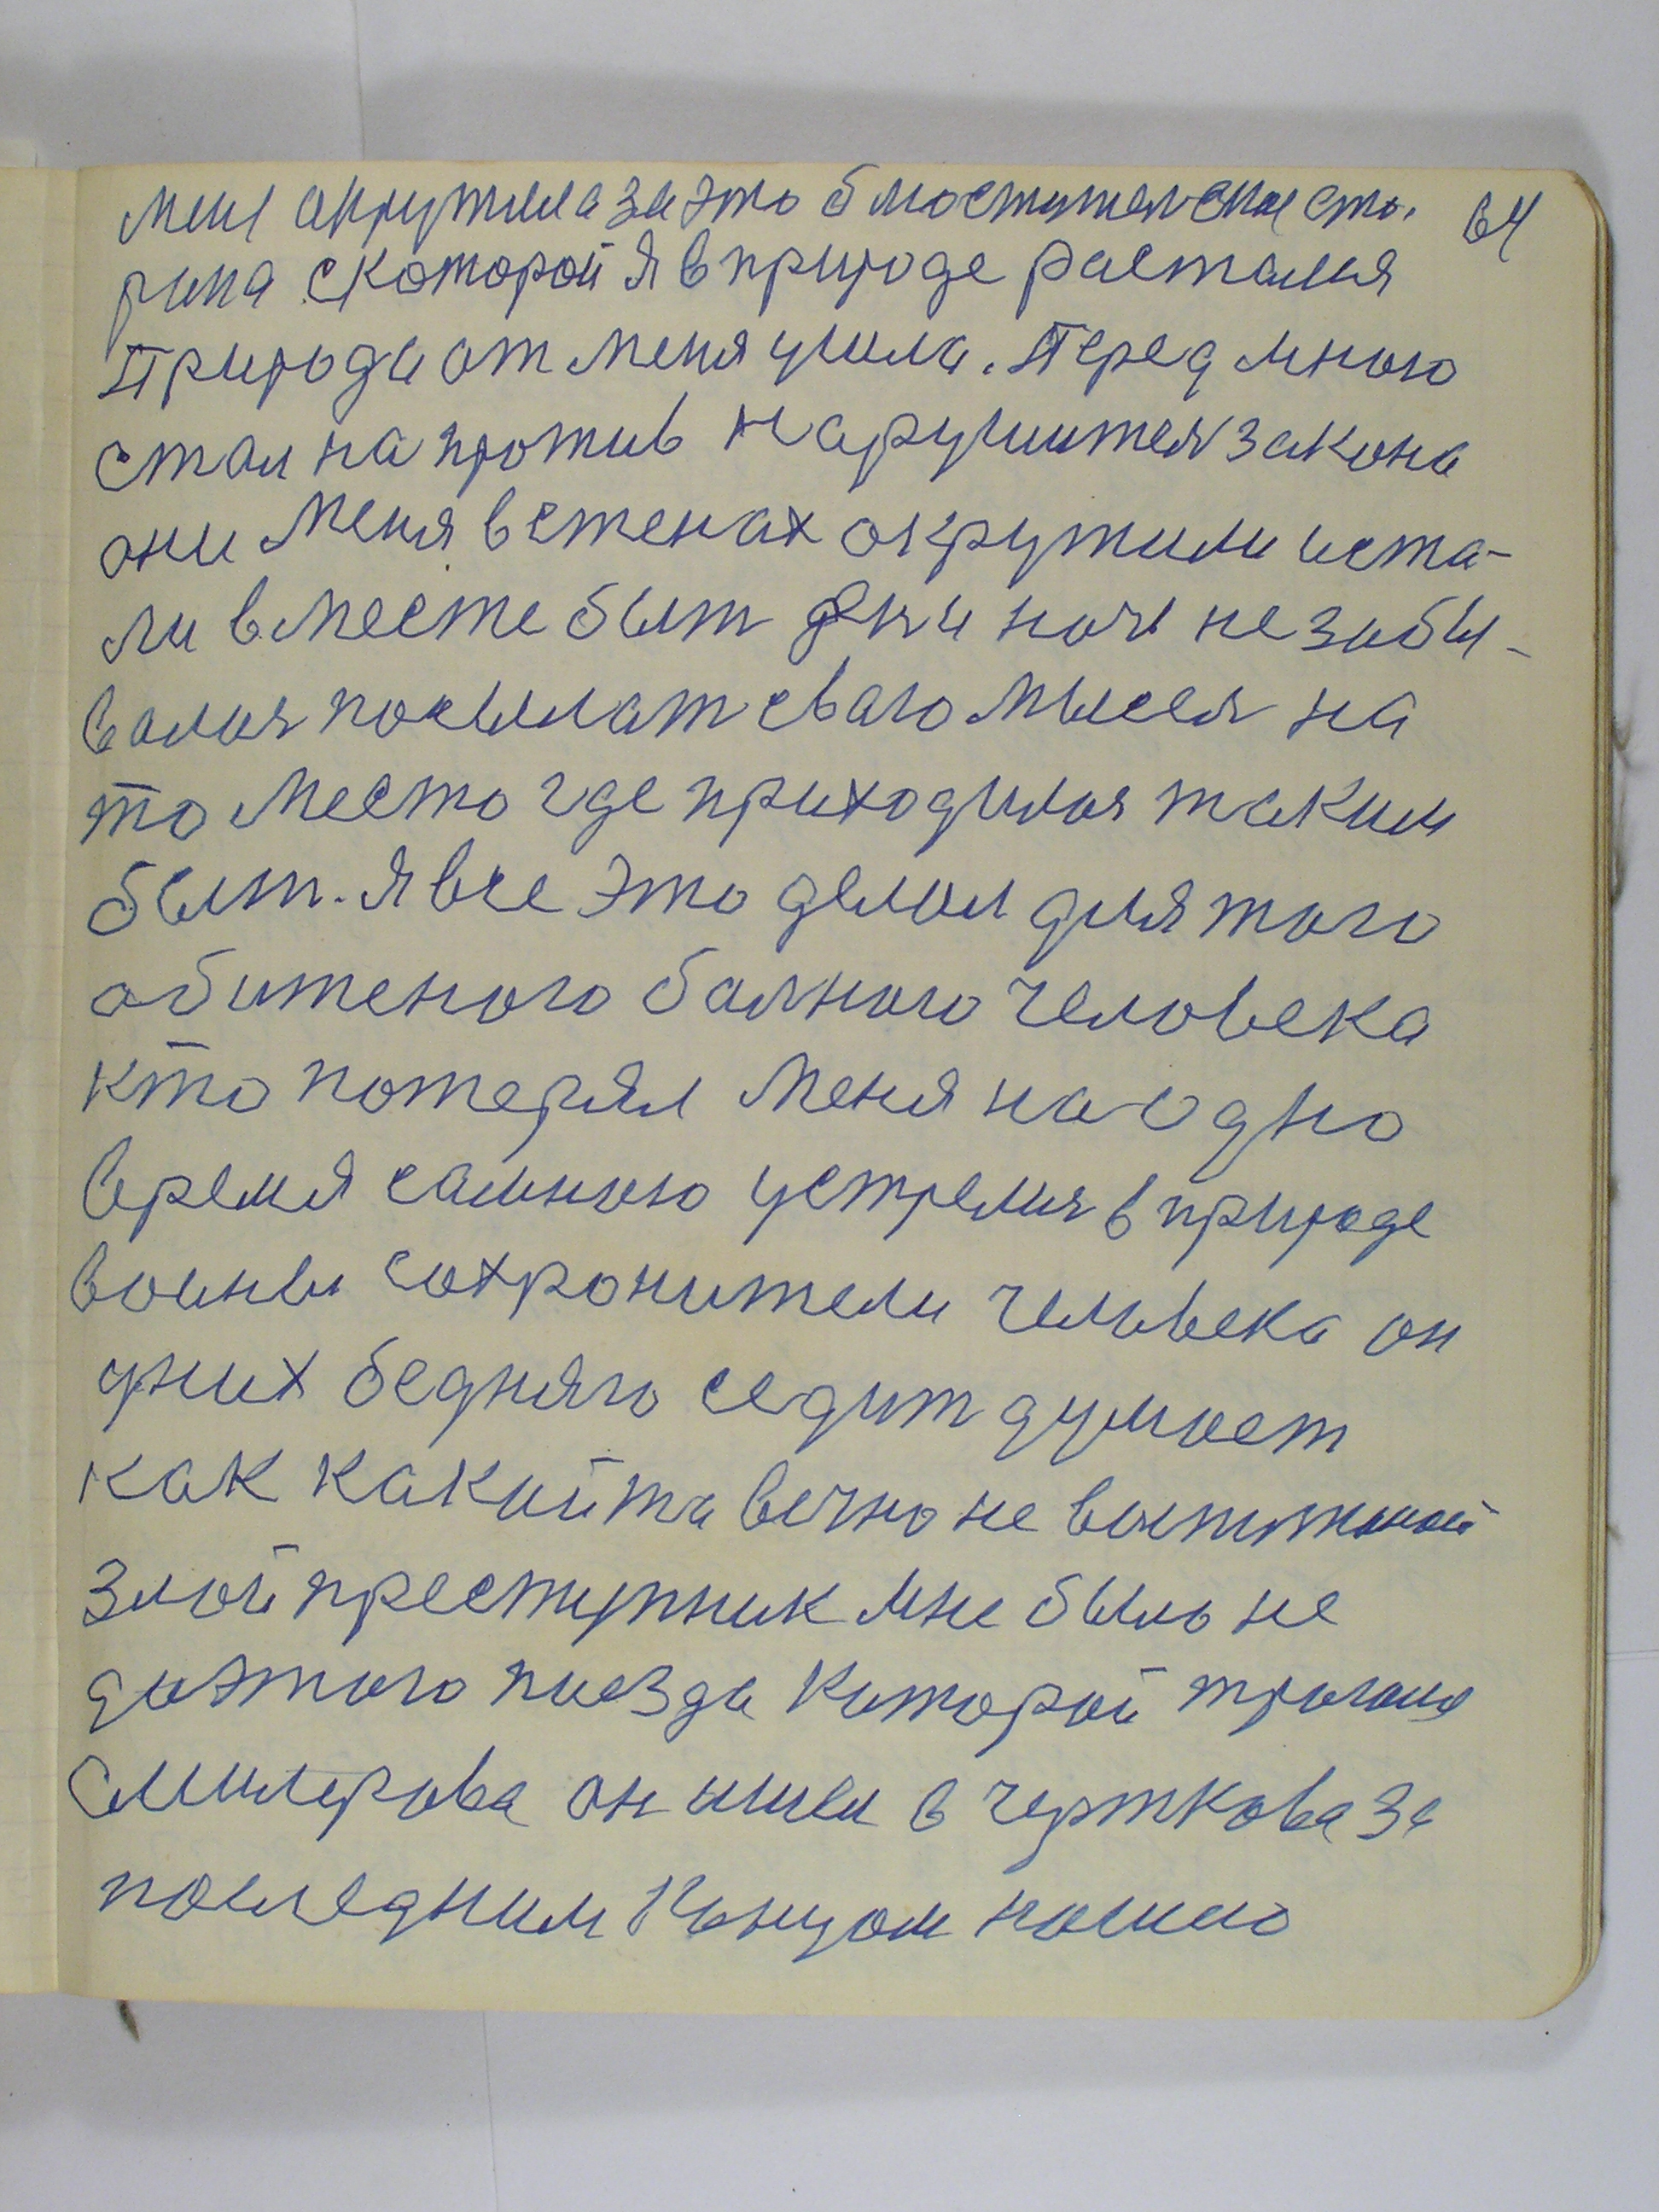 меня акружила за это блюстительская сто. 64
рана с которой я в природе растался
Природа от меня ушла. Перед мною
стал на против нарушителя закона
они меня в стенах окружили и ста-
ли вместе быт дни ночи не забы-
вался посылат сваю мысел на
то место где приходился таким
быт. я все это делал для того
обиженого балного человека
кто потерял меня на одно
время самною устрелися в природе
воины сохронители человека он
у них бедняго седит думает
как какийта вечно не выпущеной
злой преступник мне было не
до этого поезда каторай трогался
с милерова он ишел в черткова за
последним концом нашио